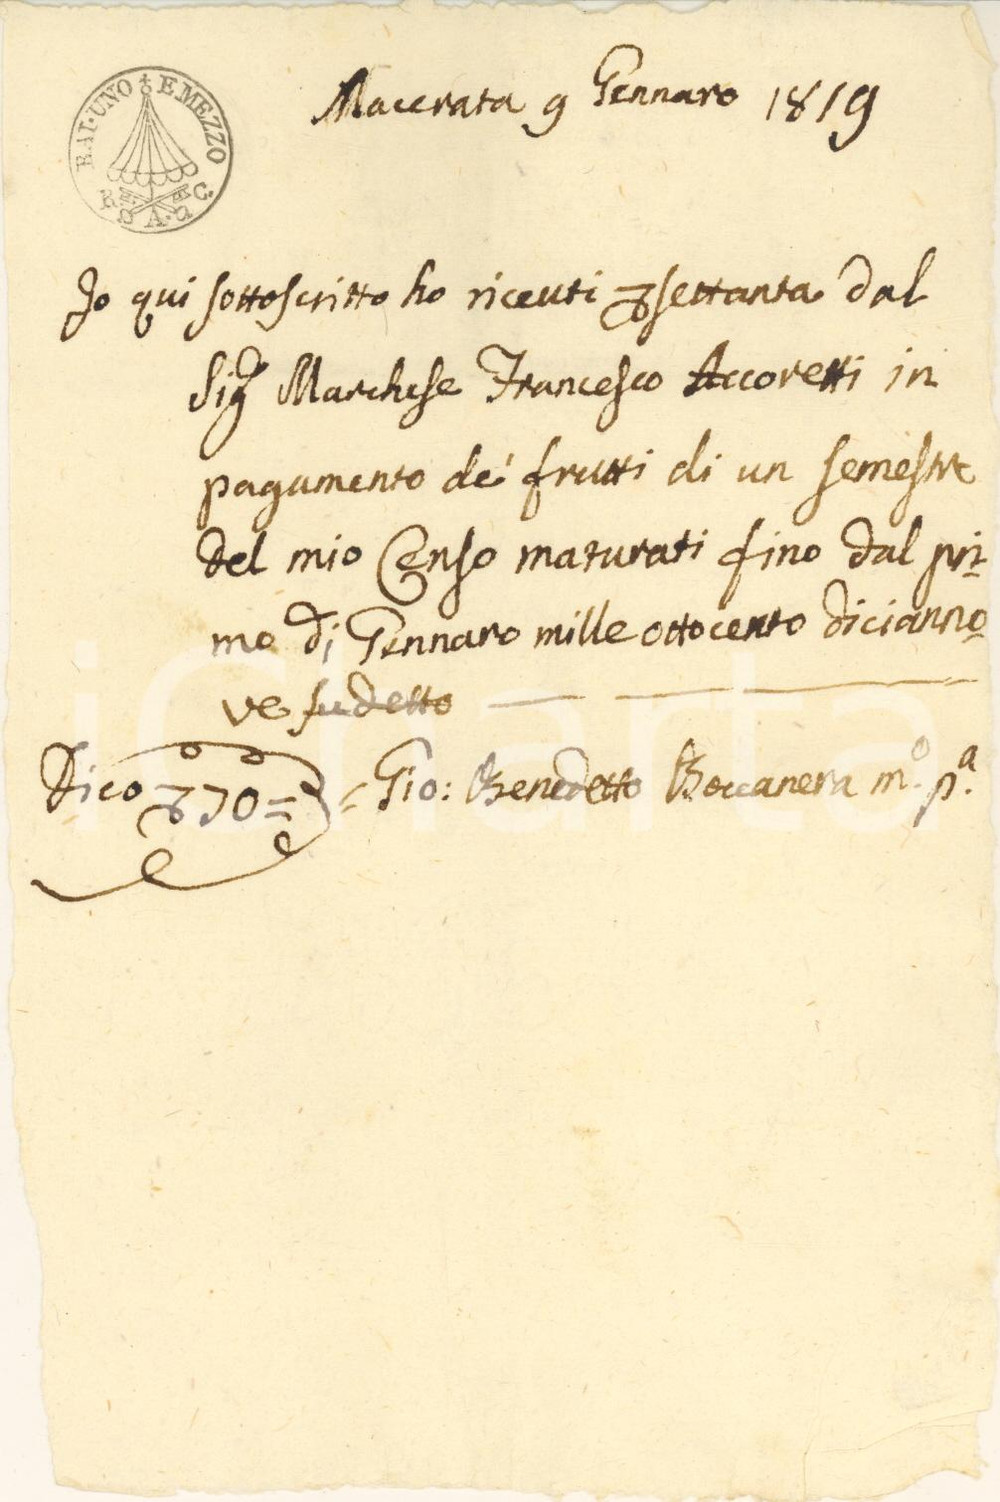 BAI·UNO E MEZZO
R. D. A. C.
Macerata 9 Gennaro 1819
Io qui sottoscritto ho riceuti settanta dal
Sig.r Marchese Francesco Accoretti in
pagamento de' frutti di un semestre
del mio Censo maturati fino dal pri-
mo di Gennaro mille ottocento dicianno-
ve sudetto
Dico 70 = Gio: Benedetto Boccanera m.o p.a
iCharta